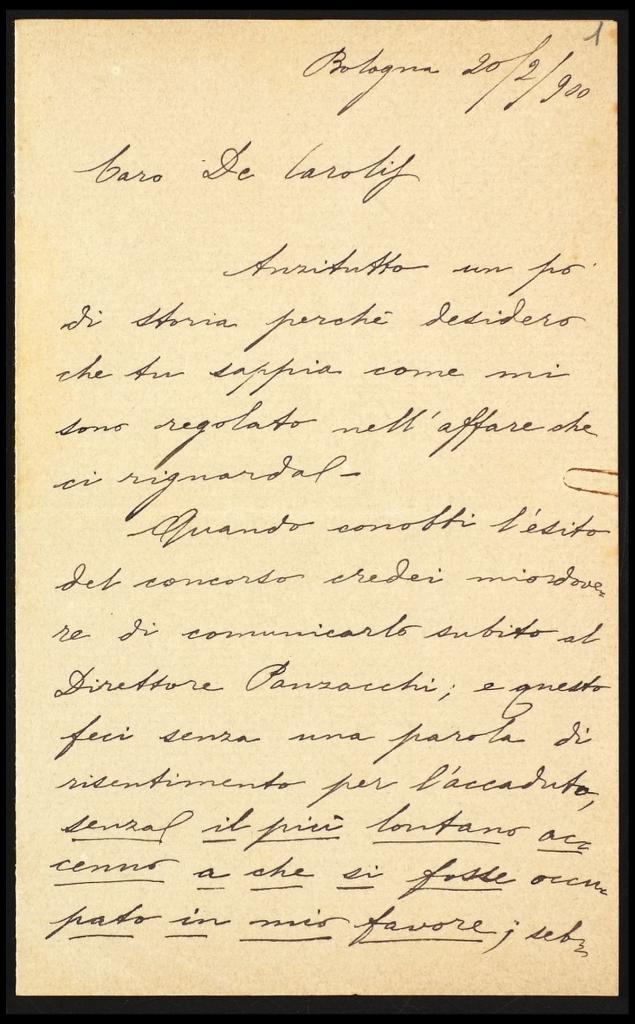 1
Bologna 20/2/900
Caro De Carolis
Anzitutto un po'
di storia perchè desidero
che tu sappia come mi
sono regolato nell'affare che
ci riguarda -
Quando conobbi l'esito
del concorso credei mio dove=
re di comunicarlo subito al
Direttore Panzacchi; e questo
feci senza una parola di
risentimento per l'accaduto,
senza il più lontano ac=
cenno a che si fosse occu=
pato in mio favore; seb=